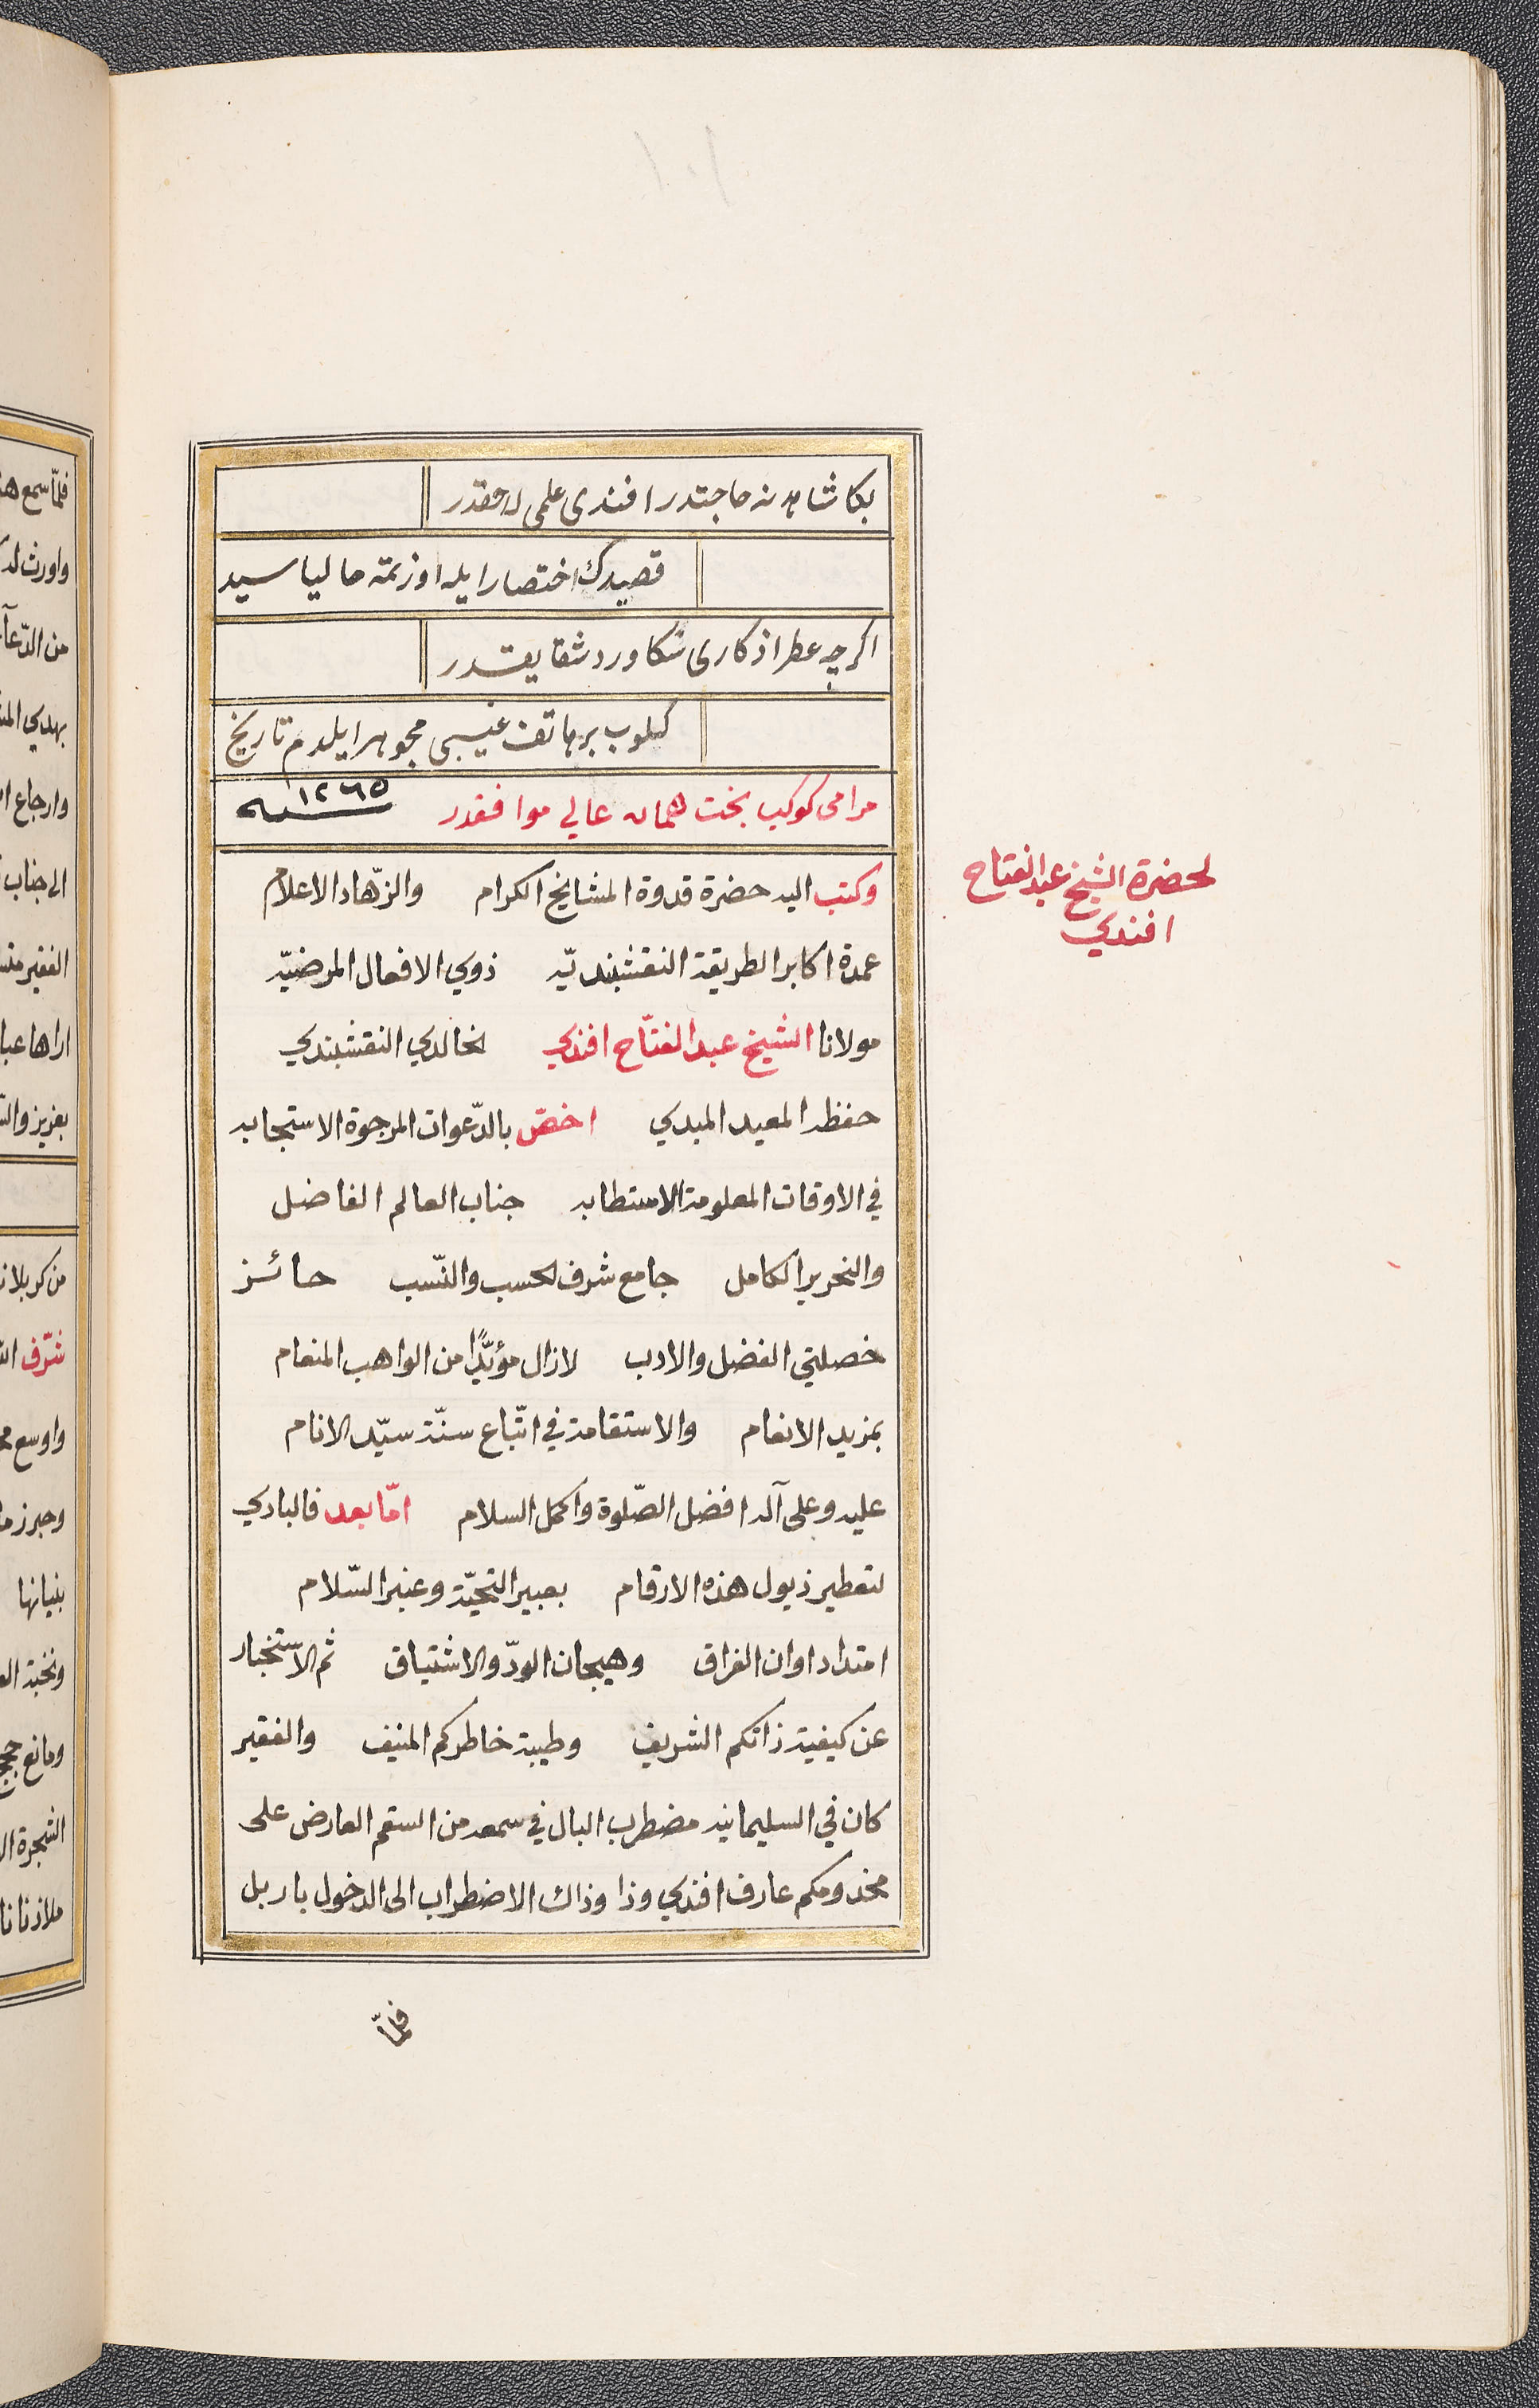 بكا شاهد نه حاجتدر افندی علمی له حقدر
قصیدك اختصار ایله اوزتمه حالیا سید
اكرچه عطر اذكاری سكا ورد شقایقدر
كلوب بر هاتف غیبی مجوهر ایلدم تاریخ
مرامی كوكب بخت همان عالی موافقدر ١٢٦٥ سنه
وكتب اليه حضرة قدوة المشايخ الكرام والزّهاد الاعلام
لحضرة الشيخ عبد الفتاح
افندي
عمدة اكابر الطريقة النقشبنديّه ذوي الافعال المرضيّه
مولانا الشيخ عبد الفتّاح افندي الخالدي النقشبندي
حفظه المعيد المبدي اخصّ بالدّعوات المرجوة الاستجابه
في الاوقات المعلومة الاستطابه جناب العالم الفاضل
والنحرير الكامل جامع شرف الحسب والنّسب حائز
خصلتي الفضل والادب لازال مؤيّدًا من الواهب المنعام
بمزيد الانعام والاستقامة في اتّباع سنّة سيّد الانام
عليه وعلى آله افضل الصّلوة واكمل السلام امّا بعد فالبادي
لتعطير ذيول هذه الارقام بعبير التحيّة وعنبر السّلام
امتداد اوان الفراق وهيجان الودّ والاشتياق ثم الاستخبار
عن كيفية ذاتكم الشريف وطيبة خاطركم المنيف والفقير
كان في السليمانيه مضطرب البال في سمعه من السقم العارض على
مخدومكم عارف افندي وذا وذاك الاضطراب الى الدخول باربل
فلمّا